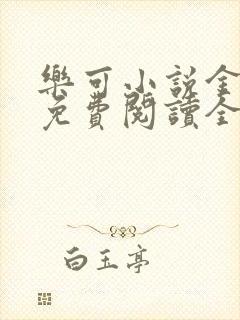 樂可小說全
免費閱讀全
白玉亭